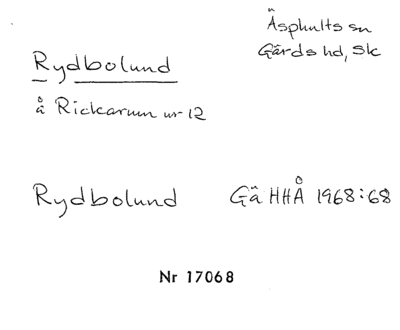 Rydbolund
Äsphults sn
Gärds hd, Sk
å Rickarum nr 12
Rydbolund Gä HHÅ 1968:68
Nr 17068